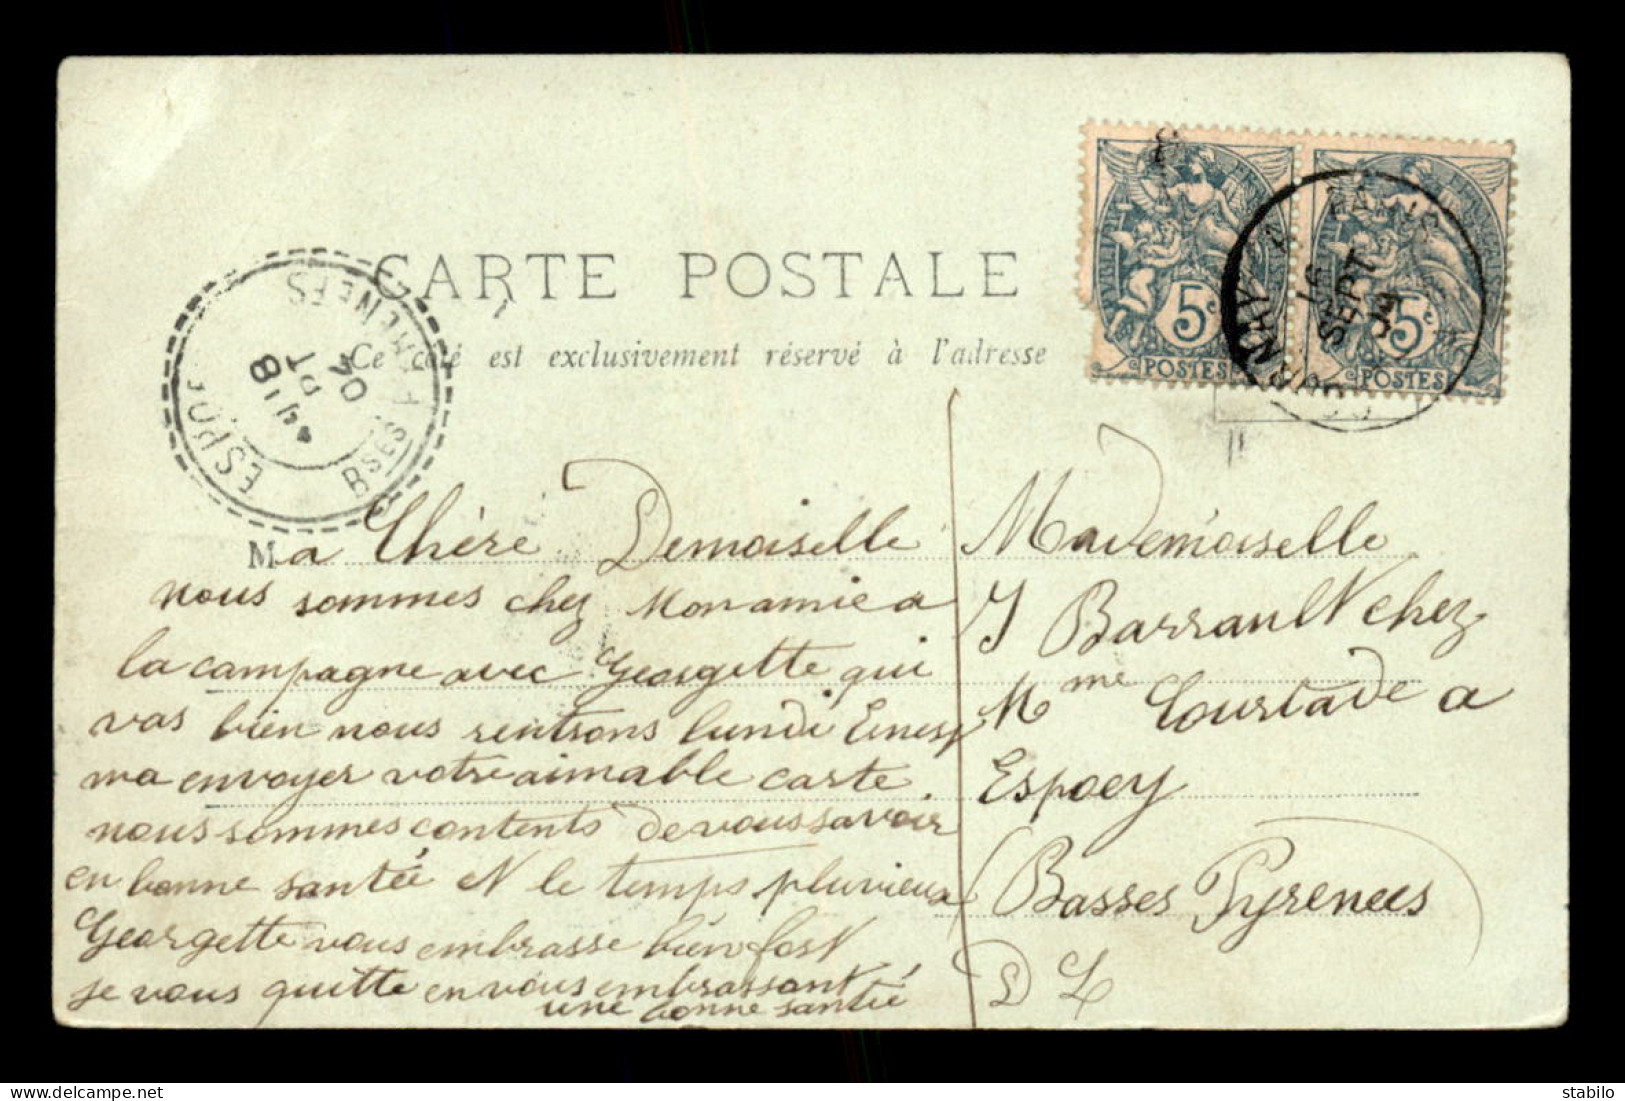 CARTE POSTALE
Ce côté est exclusivement réservé à l'adresse
5c
POSTES
5c
POSTES
16
SEPT
ESPO
Bses
18
PT
04
Ma Chère Demoiselle
nous sommes chez Mon amie a
la campagne avec Georgette qui
vas bien nous rentrons lundi Ernest
ma envoyer votre aimable carte.
nous sommes contents de vous savoir
en bonne santée et le temps pluvieux
Georgette vous embrasse bien fort
je vous quitte en vous embrassant
une bonne santée
Mademoiselle
J Barrault chez
Mme Courtade a
Espoey
(Basses Pyrenees)
stabilo